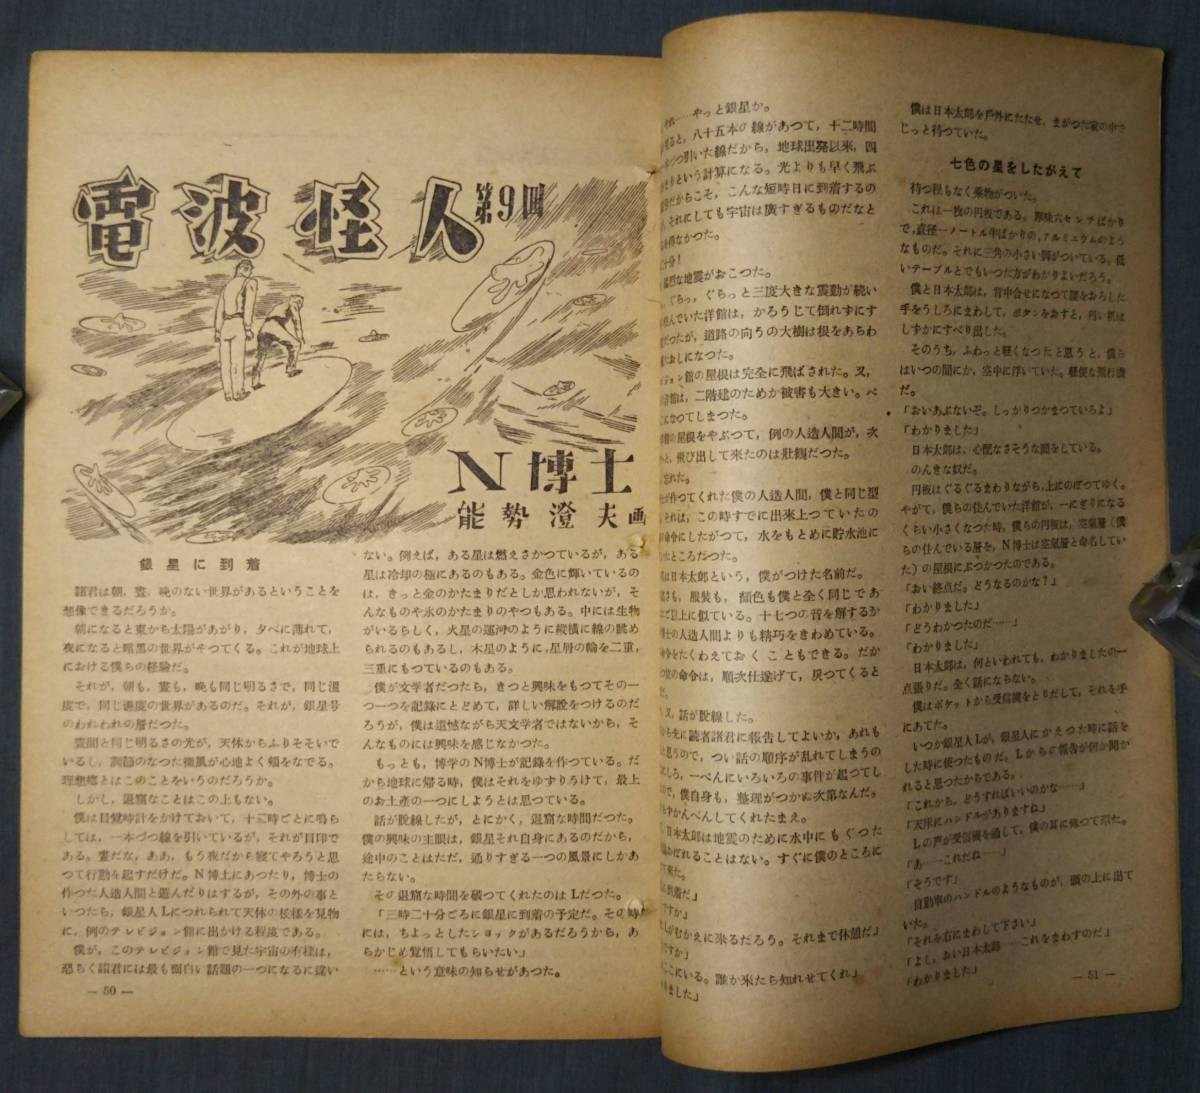 電波怪人 第9回
N博士
能勢澄夫画
銀星に到着
諸君は朝、晝、晩のない世界があるということを
想像できるだろうか。
朝になると東から太陽があがり、夕べに薄れて、
夜になると暗黒の世界がやつてくる。これが地球上
における僕らの経驗だ。
それが、朝も、晝も、晩も同じ明るさで、同じ溫
度で、同じ濕度の世界があるのだ。それが、銀星号
のわれわれの層だつた。
晝間と同じ明るさの光が、天体からふりそそいで
いるし、調節のなつた微風が心地よく頬をなでる。
理想鄕とはこのことをいうのだろうか。
しかし、退窟なことはこの上もない。
僕は目覚時計をかけておいて、十二時ごとに鳴ら
しては、一本づつ線を引いているが、それが目印で
ある。晝だな、ああ、もう夜だから寝てやろうと思
つて行動を起すだけだ。N博士にあつたり、博士の
作つた人造人間と遊んだりはするが、その外の事と
いつたら、銀星人Lにつれられて天体の模樣を見物
に、例のテレビジョン館に出かける程度である。
僕が、このテレビジョン館で見た宇宙の有樣は、
恐らく諸君には最も面白い話題の一つになるに違い
— 50 —
ない。例えば、ある星は燃えさかつているが、ある
星は冷却の極にあるのもある。金色に輝いているの
は、きっと金のかたまりだとしか思われないが、そ
んなものや氷のかたまりのやつもある。中には生物
がいるらしく、火星の運河のように縱橫に線の眺め
られるのもあるし、木星のように、星屑の輪を二重、
三重にもつているのもある。
僕が文学者だつたら、きつと興味をもつてその一
つ一つを記録にとどめて、詳しい解說をつけるのだ
ろうが、僕は遺憾ながら天文学者ではないから、そ
んなものには興味を感じなかつた。
もっとも、博学のN博士が記錄を作つている。だ
から地球に帰る時、僕はそれをゆずりうけて、最上
のお土產の一つにしようとは思つている。
話が脱線したが、とにかく、退窟な時間だつた。
僕の興味の主眼は、銀星それ自身にあるのだから、
途中のことはただ、通りすぎる一つの風景にしかあ
たらない。
その退窟な時間を破つてくれたのはLだつた。
「三時二十分ごろに銀星に到着の予定だ。その時
には、ちよっとしたショックがあるだろうから、あ
らかじめ覚悟してもらいたい」
……という意味の知らせがあつた。
……やっと銀星か。
ると、八十五本の線があつて、十二時間
つつ引いた線だから、地球出発以来、四
まりという計算になる。光よりも早く飛ぶ
だからこそ、こんな短時日に到着するの
それにしても宇宙は廣すぎるものだなと
を得なかつた。
分！
烈な地震がおこつた。
ぐらっ、ぐらっと三度大きな震動が続い
んでいた洋館は、かろうじて倒れずにす
だつたが、道路の向うの大樹は根をあらわ
おしになつた。
ジョン館の屋根は完全に飛ばされた。又、
館は、二階建のためか被害も大きい。ぺ
になつてしまつた。
の屋根をやぶつて、例の人造人間が、次
と、飛び出して来たのは壯観だつた。
忘れた。
が作つてくれた僕の人造人間、僕と同じ型
それは、この時すでに出来上つていたの
命令にしたがつて、水をもとめに貯水池に
たところだつた。
は日本太郎という、僕がつけた名前だ。
さも、服裝も、顏色も僕と全く同じであ
ど以上に似ている。十七つの音を解するか
士の人造人間よりも精巧をきわめている。
令をたくわえておくこともできる。だか
の命令は、順次仕遂げて、戻つてくると
だ。
又、話が脱線した。
から先に読者諸君に報告してよいか、あれも
と思うので、つい話の順序が乱れてしまうの
しろ、一ぺんにいろいろの事件が起つてし
で、僕自身も、整理がつかぬ次第なんだ。
ずかんべんしてくれたまえ。
日本太郎は地震のために水中にもぐつた
おぼれることはない。すぐに僕のところに
て来た。
に到着だ」
ですか」
Lがむかえに来るだろう。それまで休憩だ」
ですか」
ここにいる。誰か来たら知れせてくれ」
りました」
僕は日本太郎を戸外にたたせ、まがつた家の中で
じっと待つていた。
七色の星をしたがえて
待つ程もなく乘物がついた。
これは一枚の円板である。厚味六センチばかり
で、直径一メートル半ばかりの、アルミニウムのよう
なものだ。それに三角の小さい脚がついている。低
いテーブルとでもいつた方がわかりよいだろう。
僕と日本太郎は、背中合せになつて腰をおろした
手をうしろにまわして、ボタンをおすと、円い板は
しずかにすべり出した。
そのうち、ふわっと軽くなつたと思うと、僕ら
はいつの間にか、空中に浮いていた。軽便な飛行機
だ。
「おいあぶないぞ。しっかりつかまつていろよ」
「わかりました」
日本太郎は、心配なさそうな顔をしている。
のんきな奴だ。
円板はぐるぐるまわりながら、上にのぼつてゆく。
やがて、僕らの住んでいた洋館が、一にぎりになる
くらい小さくなつた時、僕らの円板は、空氣層（僕
らの住んでいる層を、N博士は空氣層と命名してい
た）の屋根にぶつかつたのである。
「おい終点だ。どうなるのかな？」
「わかりました」
「どうわかつたのだ……」
「わかりました」
日本太郎は、何といわれても、わかりましたの一
点張りだ。全く話にならない。
僕はポケットから受信機をとりだして、それを手
にあてた。
いつか銀星人Lが、銀星人にかえつた時に話を
した時に使つたものだ。Lからの報告が何か聞か
れると思つたからである。
「これから、どうすればいいのかな……」
「天体にハンドルがありますね」
Lの声が受信機を通して、僕の耳に傳つて来た。
「あ……これだね……」
「そうです」
自動車のハンドルのようなものが、頭の上に出て
いた。
「それを右にまわして下さい」
「よし、おい日本太郎……これをまわすのだ」
「わかりました」
— 51 —